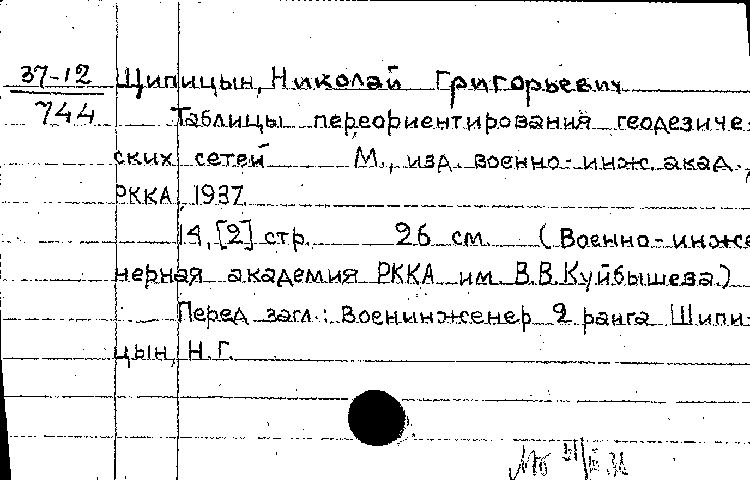 37-12 Щипицын, Николай Григорьевич
744 Таблицы переориентирования геодезиче-
ских сетей М., изд. военно-инж. акад.,
РККА, 1937.
14, [2] стр. 26 см. (Военно-инже
нерная академия РККА им. В.В.Куйбышева.)
Перед загл.: Воeнинженер 2 ранга Шипи-
цын, Н.Г.